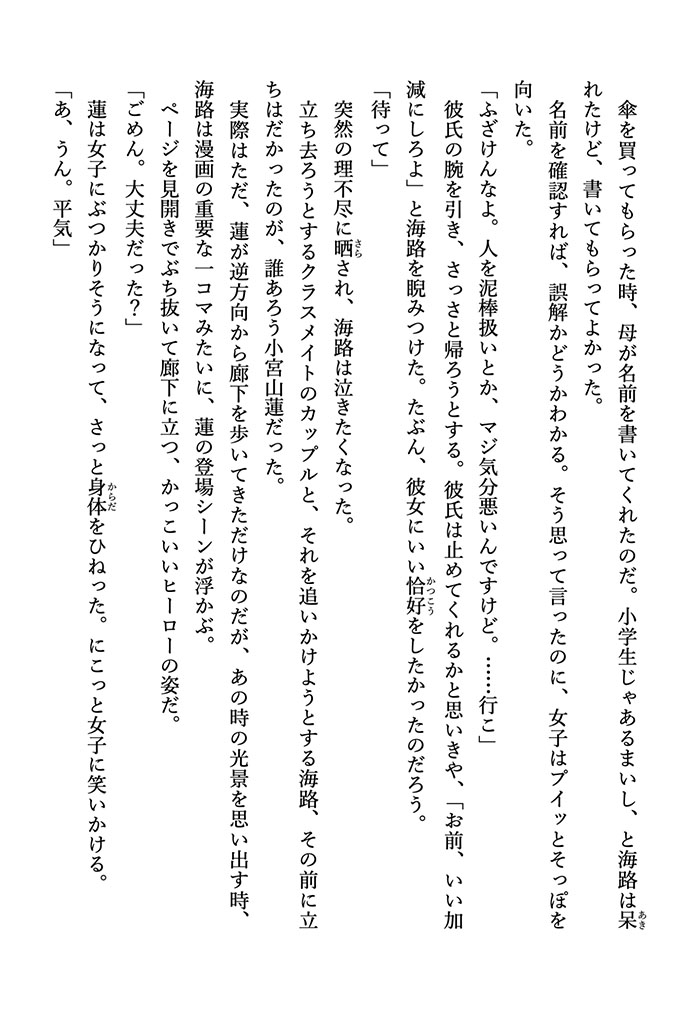 傘を買ってもらった時、母が名前を書いてくれたのだ。小学生じゃあるまいし、と海路は呆
れたけど、書いてもらってよかった。
　名前を確認すれば、誤解かどうかわかる。そう思って言ったのに、女子はプイッとそっぽを
向いた。
「ふざけんなよ。人を泥棒扱いとか、マジ気分悪いんですけど。……行こ」
　彼氏の腕を引き、さっさと帰ろうとする。彼氏は止めてくれるかと思いきや、「お前、いい加
減にしろよ」と海路を睨みつけた。たぶん、彼女にいい恰好をしたかったのだろう。
「待って」
　突然の理不尽に晒され、海路は泣きたくなった。
　立ち去ろうとするクラスメイトのカップルと、それを追いかけようとする海路、その前に立
ちはだかったのが、誰あろう小宮山蓮だった。
　実際はただ、蓮が逆方向から廊下を歩いてきただけなのだが、あの時の光景を思い出す時、
海路は漫画の重要な一コマみたいに、蓮の登場シーンが浮かぶ。
　ページを見開きでぶち抜いて廊下に立つ、かっこいいヒーローの姿だ。
「ごめん。大丈夫だった？」
　蓮は女子にぶつかりそうになって、さっと身体をひねった。にこっと女子に笑いかける。
「あ、うん。平気」